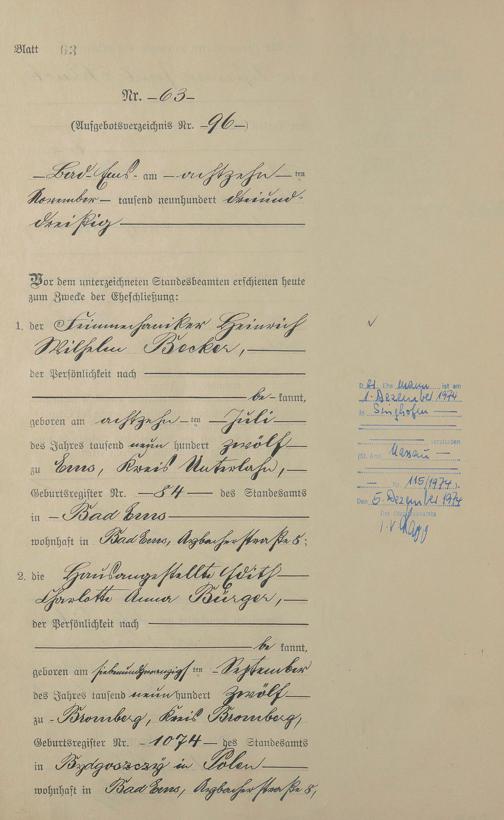 Blatt 63
Nr. -63-
(Aufgebotsverzeichnis Nr. -96-)
-Bad-Ems- am -achtzehn- ten
November- tausend neunhundert dreiund-
dreißig
Vor dem unterzeichneten Standesbeamten erschienen heute
zum Zwecke der Eheschließung:
1. der Feinmechaniker Heinrich
Wilhelm Becker,
der Persönlichkeit nach
be- kannt,
geboren am achtzehn- ten -Juli-
des Jahres tausend neun hundert zwölf
zu Ems, Kreis Unterlahn,
Geburtsregister Nr. -84- des Standesamts
in -Bad Ems
wohnhaft in Bad Ems, Arzbacherstraße 8;
2. die Hausangestellte Edith
Charlotte Anna Bürger,
der Persönlichkeit nach
be kannt,
geboren am siebenundzwanzigs ten -September
des Jahres tausend neun hundert zwölf
zu -Bromberg, Kreis Bromberg,
Geburtsregister Nr. -1074- des Standesamts
in Bydgoszczy in Polen
wohnhaft in Bad Ems, Arzbacherstraße 8,
D. Ehemann ist am
1. Dezember 1974
in Singhofen
verstorben
(St. Amt Nassau
Nr. 115/1974).
Den 5. Dezember 1974
Der Standesbeamte
I.V.